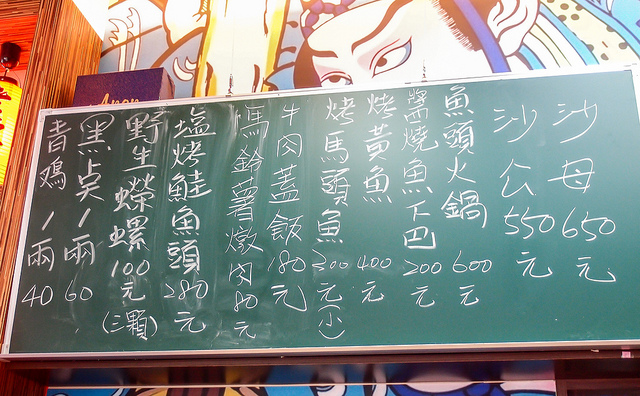 沙母650元
沙公550元
魚頭火鍋600元
醬燒魚下巴200元
烤黃魚400元
烤馬頭魚300元(小)
牛肉蓋飯180元
馬鈴薯燉肉80元
塩烤鮭魚頭280元
野生蠑螺100元(三顆)
黑占1兩60
青鷄1兩40